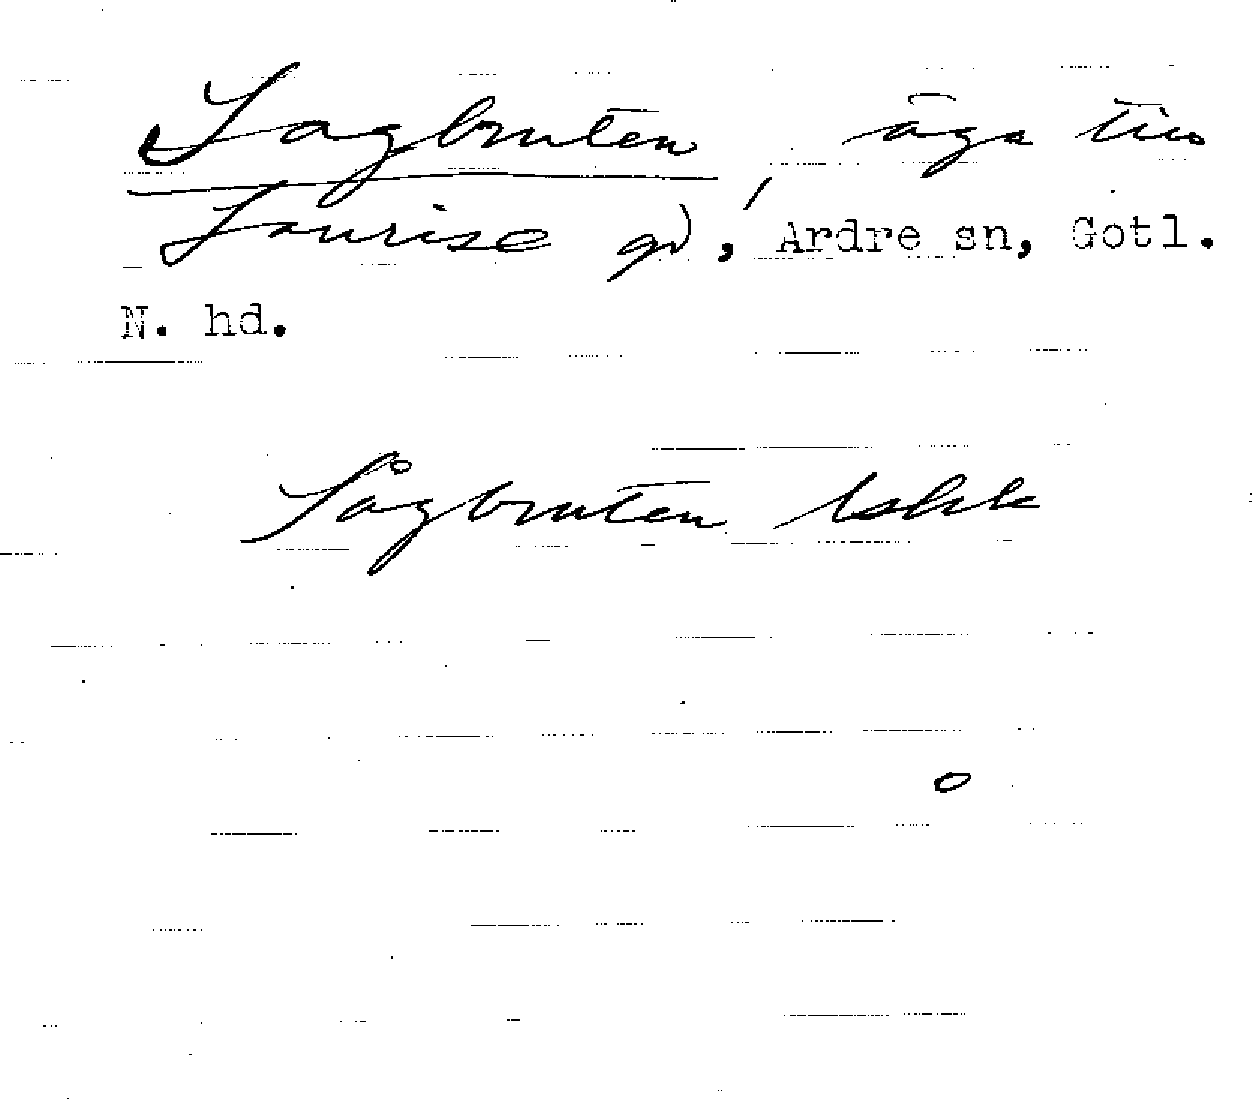 Sagbruten, äga till
Laurise gd, Ardre sn, Gotl.
N. hd.
Sågbruten Lskk